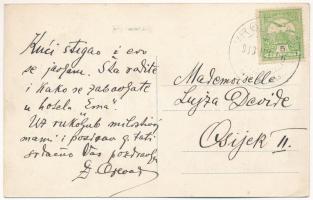 Kući stigao i evo
se javljam. Šta radite
i kako se zabavljate
u hotelu "Ema"
Uz rukoljub milostivoj
mami i pozdrav g. tati
srdačno Vas pozdravlja
Mademoiselle
Lujza Devide
Osijek II.